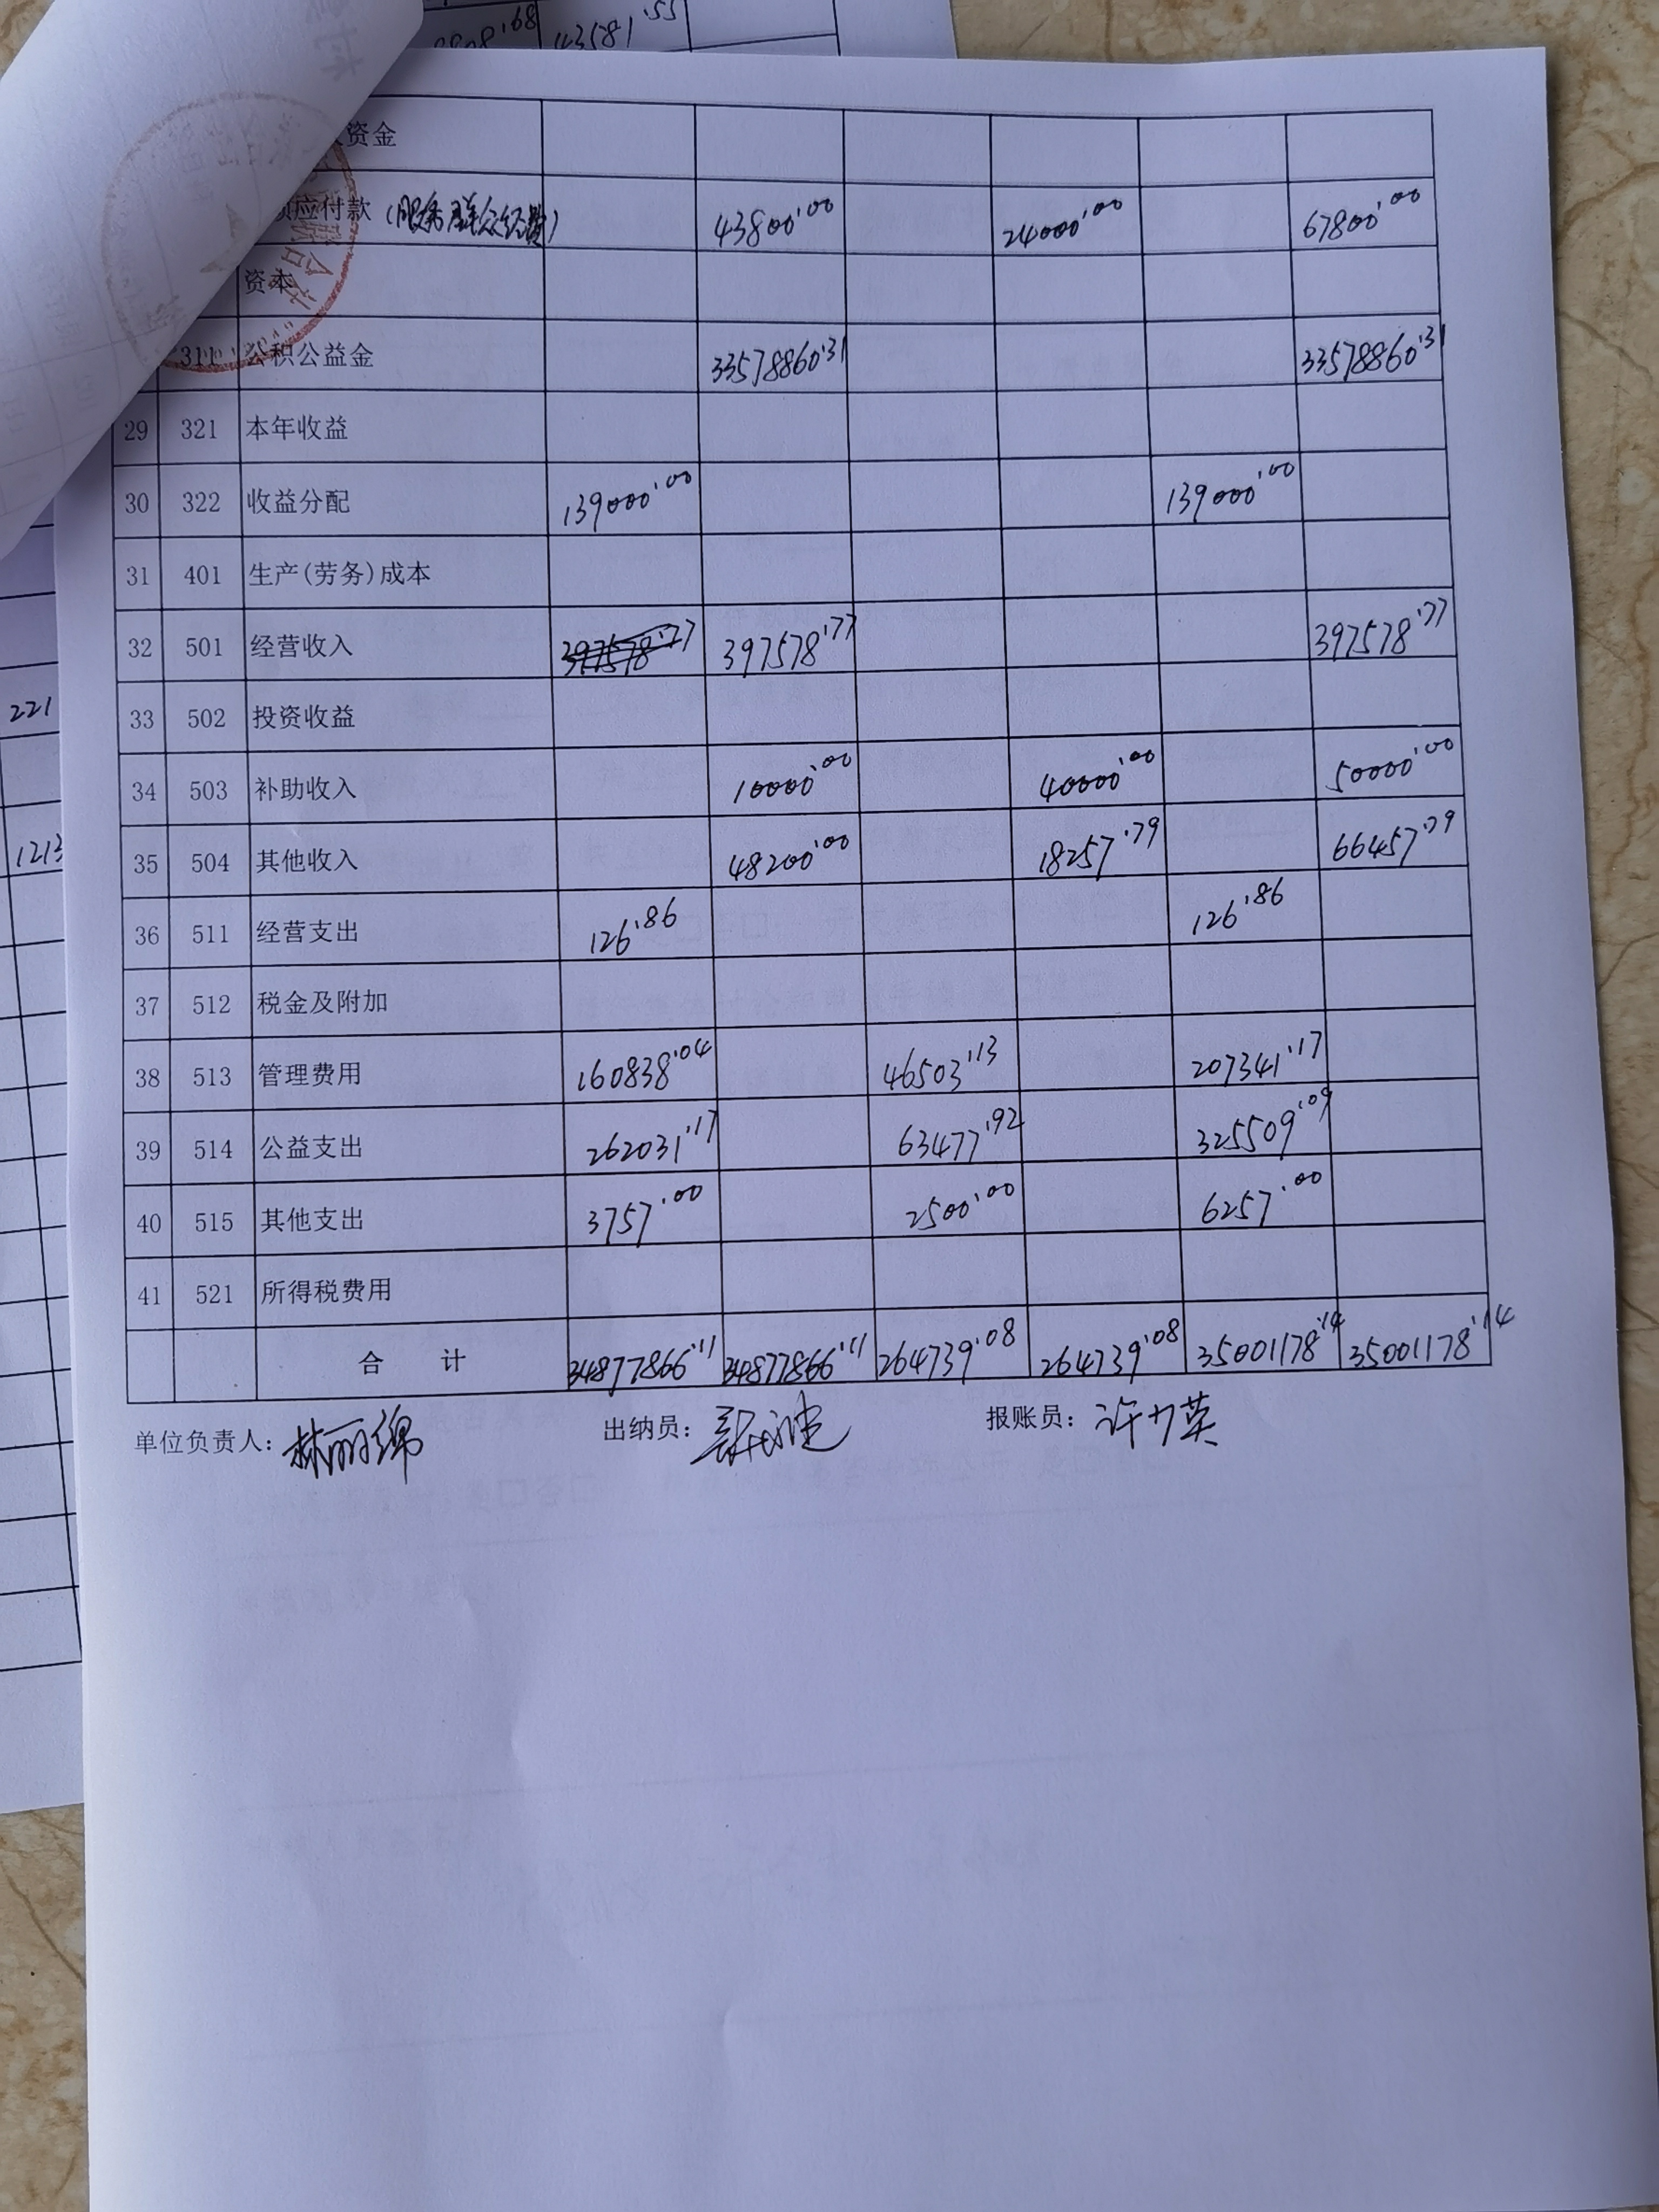 808.68 43581.55
资金
项应付款 (服务群众经费) 43800.00 24000.00 67800.00
资本
311 公积公益金 33578860.31 33578860.31
29 321 本年收益
30 322 收益分配 139000.00 139000.00
31 401 生产(劳务)成本
32 501 经营收入 397578.77 397578.77 397578.77
33 502 投资收益
34 503 补助收入 10000.00 40000.00 50000.00
35 504 其他收入 48200.00 18257.79 66457.79
36 511 经营支出 126.86 126.86
37 512 税金及附加
38 513 管理费用 160838.04 46503.13 207341.17
39 514 公益支出 262031.17 63477.92 325509.09
40 515 其他支出 3757.00 2500.00 6257.00
41 521 所得税费用
合 计 34877866.11 34877866.11 264739.08 264739.08 35001178.14 35001178.14
单位负责人: 林丽绵 出纳员: 报账员: 许力英
221
1213